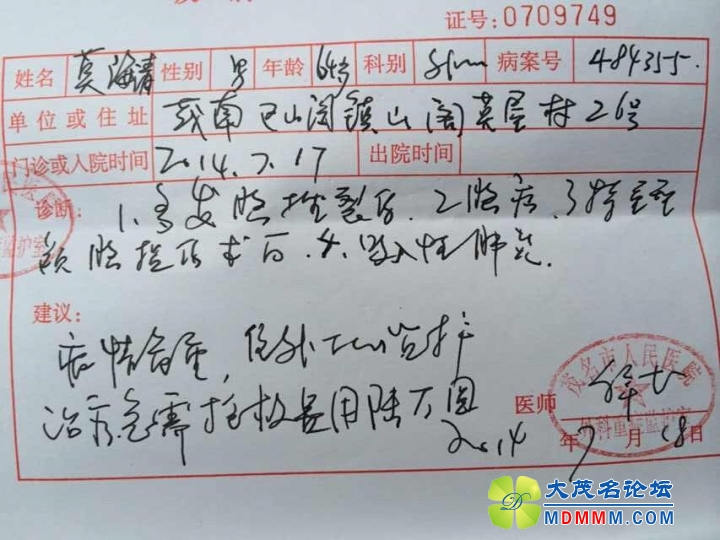 证号:0709749
姓名 莫海清 性别 男 年龄 64岁 科别 病案号 484355.
单位或住址 镇山阁莫屋村26号
门诊或入院时间 2014.7.17 出院时间
诊断: 1.多发脑挫裂伤. 2.脑疝. 3.
术后. 4.吸入性肺炎.
建议:
病情危重, 住外科ICU监护
治疗, 急需抢救费用陆万圆
医师
2014年7月18日
茂名市人民医院
外科重症监护室
大茂名论坛
MDMMM.COM